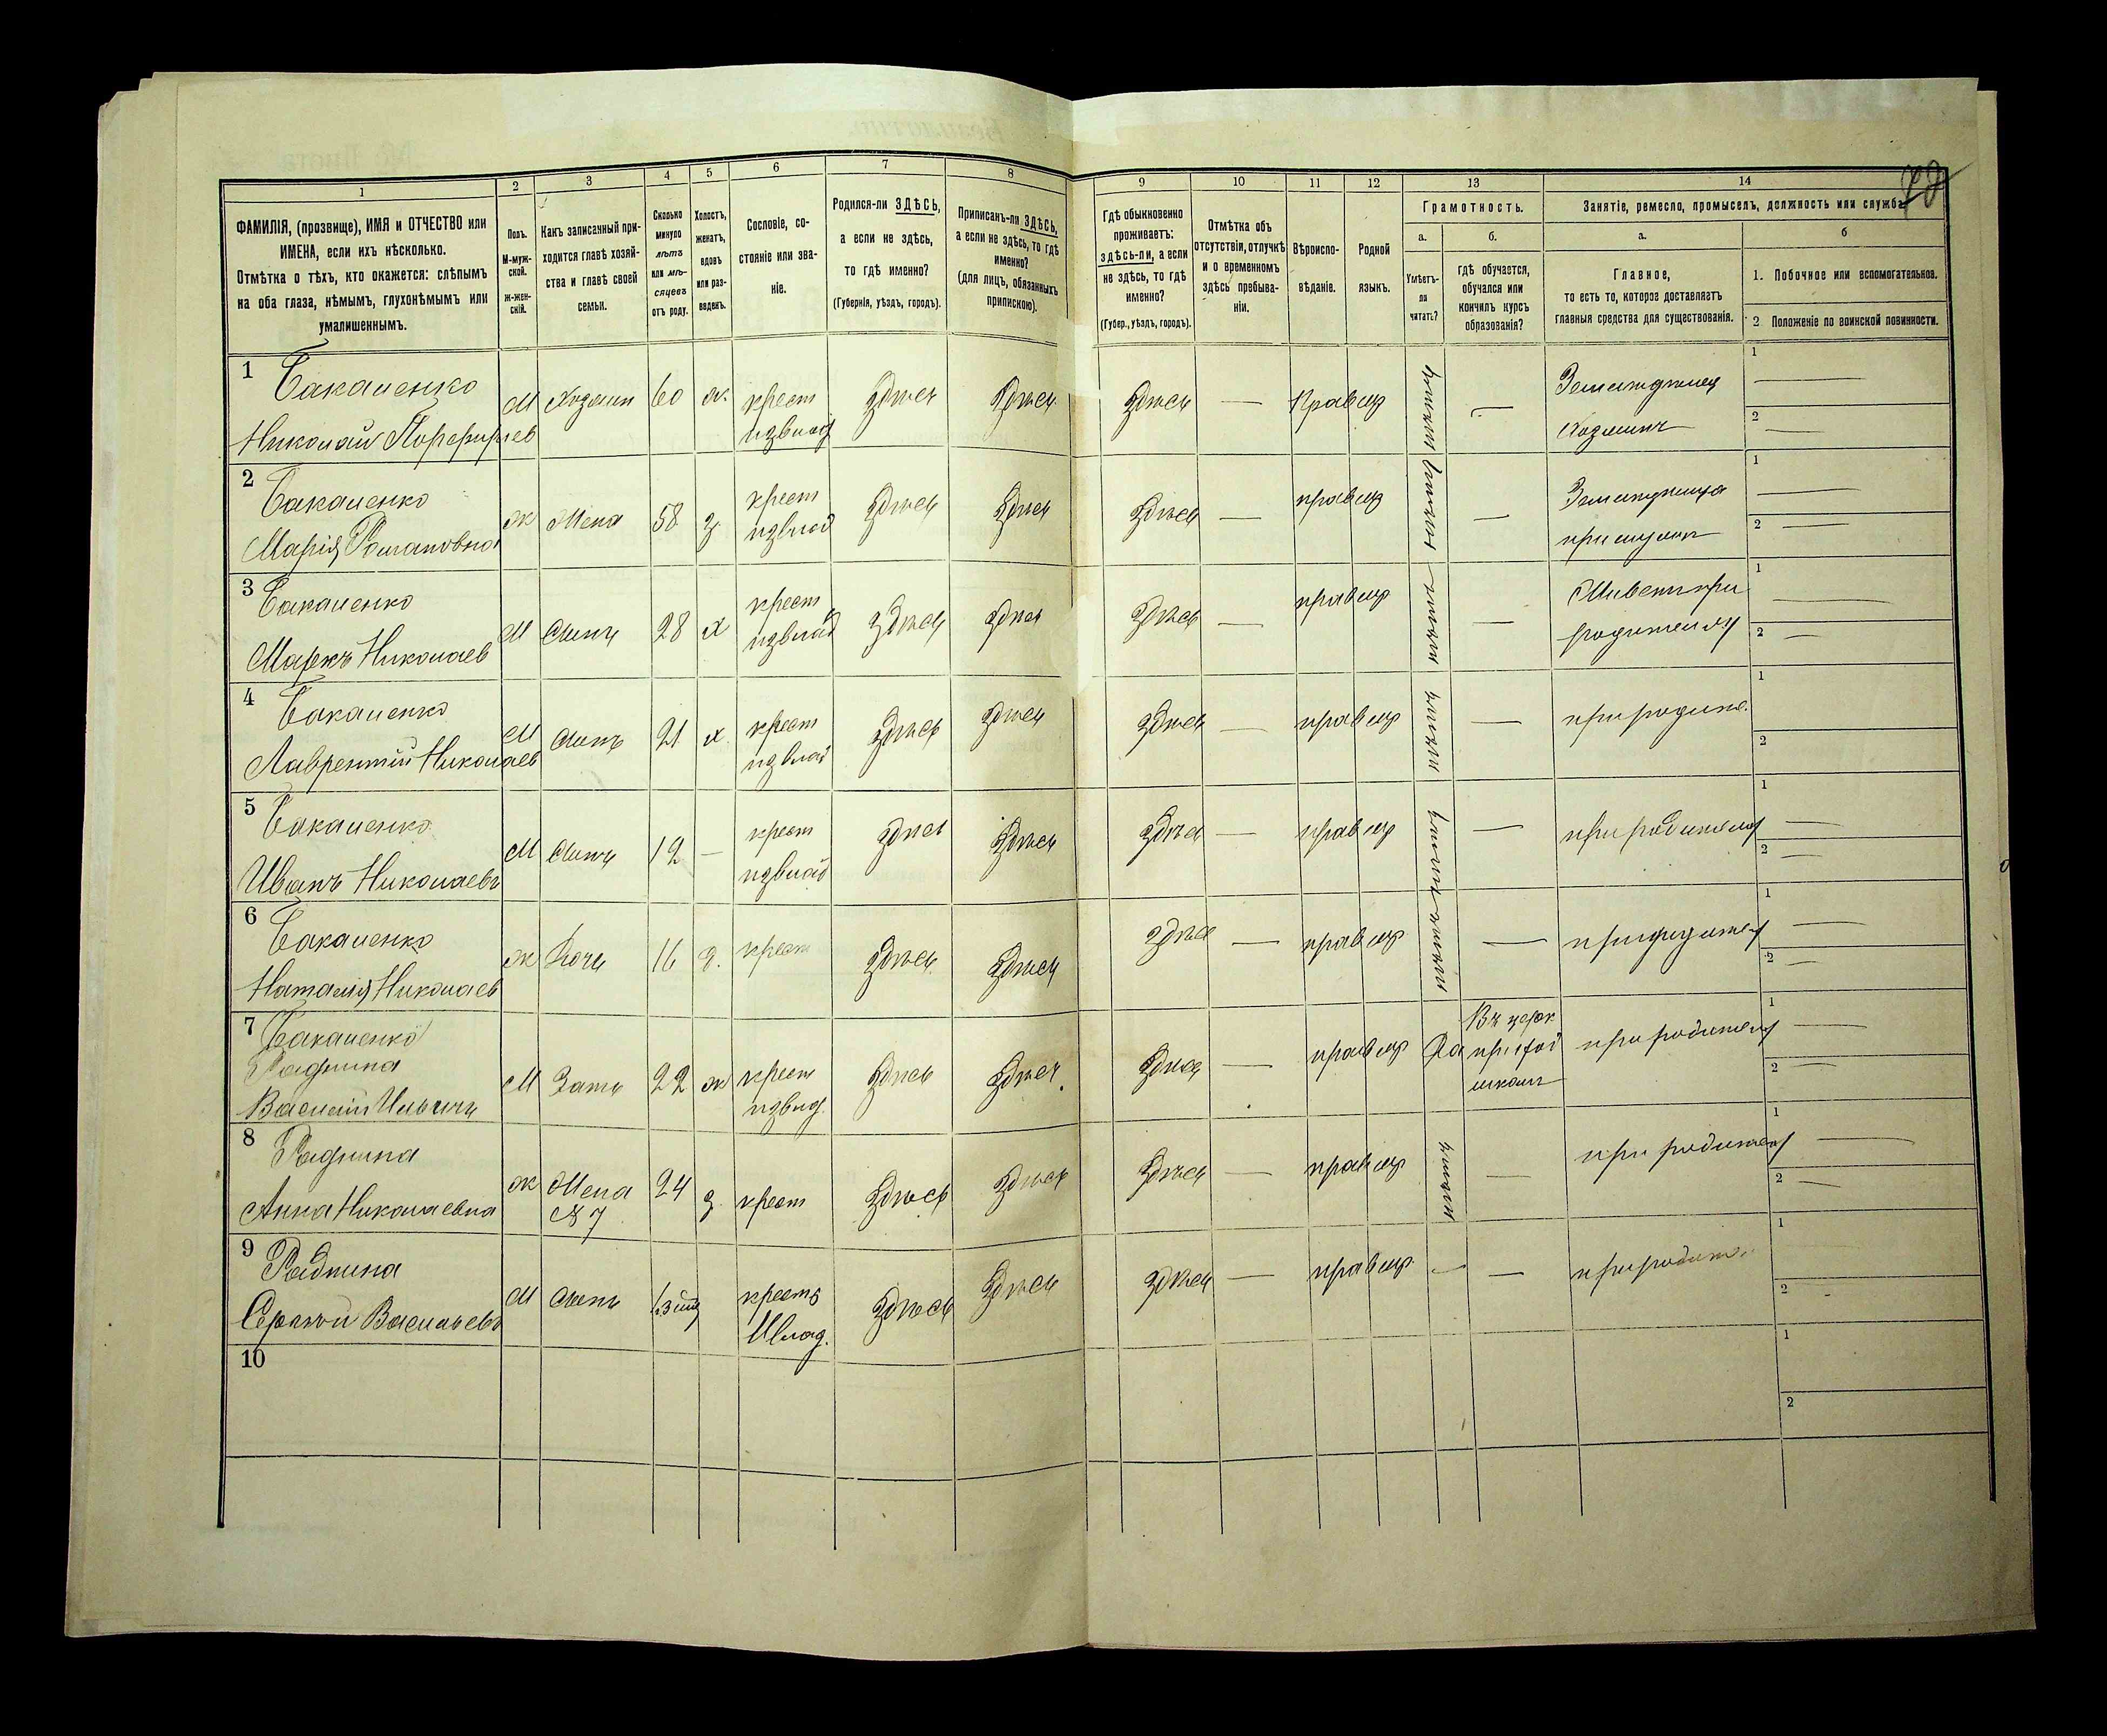 1
2
3
4
5
6
7
8
9
10
11
12
13
14
ФАМИЛІЯ, (прозвище), ИМЯ и ОТЧЕСТВО или
ИМЕНА, если ихъ нѣсколько.
Отмѣтка о тѣхъ, кто окажется: слѣпымъ
на оба глаза, нѣмымъ, глухонѣмымъ или
умалишеннымъ.
Полъ.
М-муж-
ской.
Ж-жен-
скій.
Какъ записанный при-
ходится главѣ хозяй-
ства и главѣ своей
семьи.
Сколько
минуло
лѣтъ
или мѣ-
сяцевъ
отъ роду.
Холостъ,
женатъ,
вдовъ
или раз-
веденъ.
Сословіе, со-
стояніе или зва-
ніе.
Родился-ли ЗДѢСЬ,
а если не здѣсь,
то гдѣ именно?
(Губернія, уѣздъ, городъ).
Приписанъ-ли ЗДѢСЬ,
а если не здѣсь, то гдѣ
именно?
(для лицъ, обязанныхъ
припискою).
Гдѣ обыкновенно
проживаетъ:
здѣсь-ли, а если
не здѣсь, то гдѣ
именно?
(Губер., уѣздъ, городъ).
Отмѣтка объ
отсутствіи, отлучкѣ
и о временномъ
здѣсь пребыва-
ніи.
Вѣроиспо-
вѣданіе.
Родной
языкъ.
Грамотность.
а.
Умѣетъ-
ли
читать?
б.
гдѣ обучается,
обучался или
кончилъ курсъ
образованія?
Занятіе, ремесло, промыселъ, должность или служба
а.
Главное,
то есть то, которое доставляетъ
главныя средства для существованія.
б
1. Побочное или вспомогательное.
2 Положеніе по воинской повинности.
1 Бакаленко
Николай Порфирьев
М Хозяин 60 ж. крест
извлад Здѣсь Здѣсь Здѣсь — Прав мр — Земледѣлец
Хозяинъ
2 Бакаленко
Марія Романовна
ж Жена 58 з крест
извлад Здѣсь Здѣсь Здѣсь — прав мр —
при мужѣ
3 Бакаленко
Маркъ Николаев
М Сынъ 28 х крест
извлад Здѣсь Здѣсь Здѣсь — прав мр — Живетъ при
родителяхъ
4 Бакаленко
Лаврентій Николаев
М Сынъ 21 х крест
извлад Здѣсь Здѣсь Здѣсь — прав мр — при родите.
5 Бакаленко
Иванъ Николаевъ
М Сынъ 12 — крест
извлад Здѣсь Здѣсь Здѣсь — прав мр —
при родителях
6 Бакаленко
Наталія Николаев
ж Дочь 16 д. крест Здѣсь Здѣсь Здѣсь — прав мр —
7 Бакаленко
Василій Ильичъ
М Зять 22 ж крест
извлад. Здѣсь Здѣсь Здѣсь — прав мр Да Въ церк
приход
школѣ при родителях
8
Анна Николаевна
ж Жена
№ 7 24 з. крест Здѣсь Здѣсь Здѣсь — прав мр — при родителях
9
Сергѣй Васильевъ
М Сынъ крестъ
Ивлад. Здѣсь Здѣсь Здѣсь — прав мр. — — при родите
10
1
2